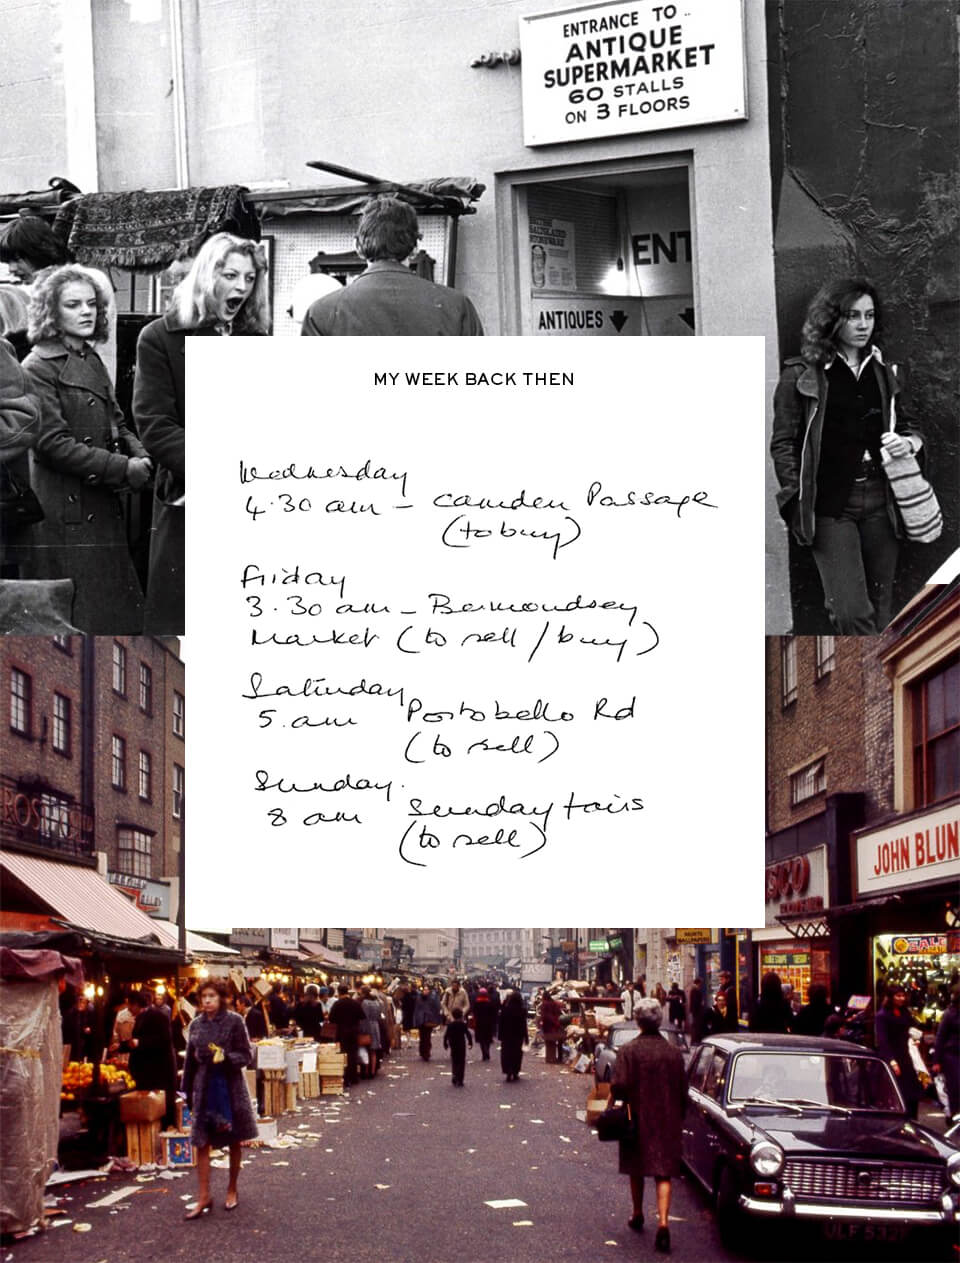 ENTRANCE TO
ANTIQUE
SUPERMARKET
60 STALLS
ON 3 FLOORS
ENT
ANTIQUES
MY WEEK BACK THEN
Wednesday
4.30 am - Camden Passage
(to buy)
Friday
3.30 am - Bermondsey
Market (to sell / buy)
Saturday
5.am Portobello Rd
(to sell)
Sunday.
8 am Sunday fairs
(to sell)
JOHN BLUN
SALE